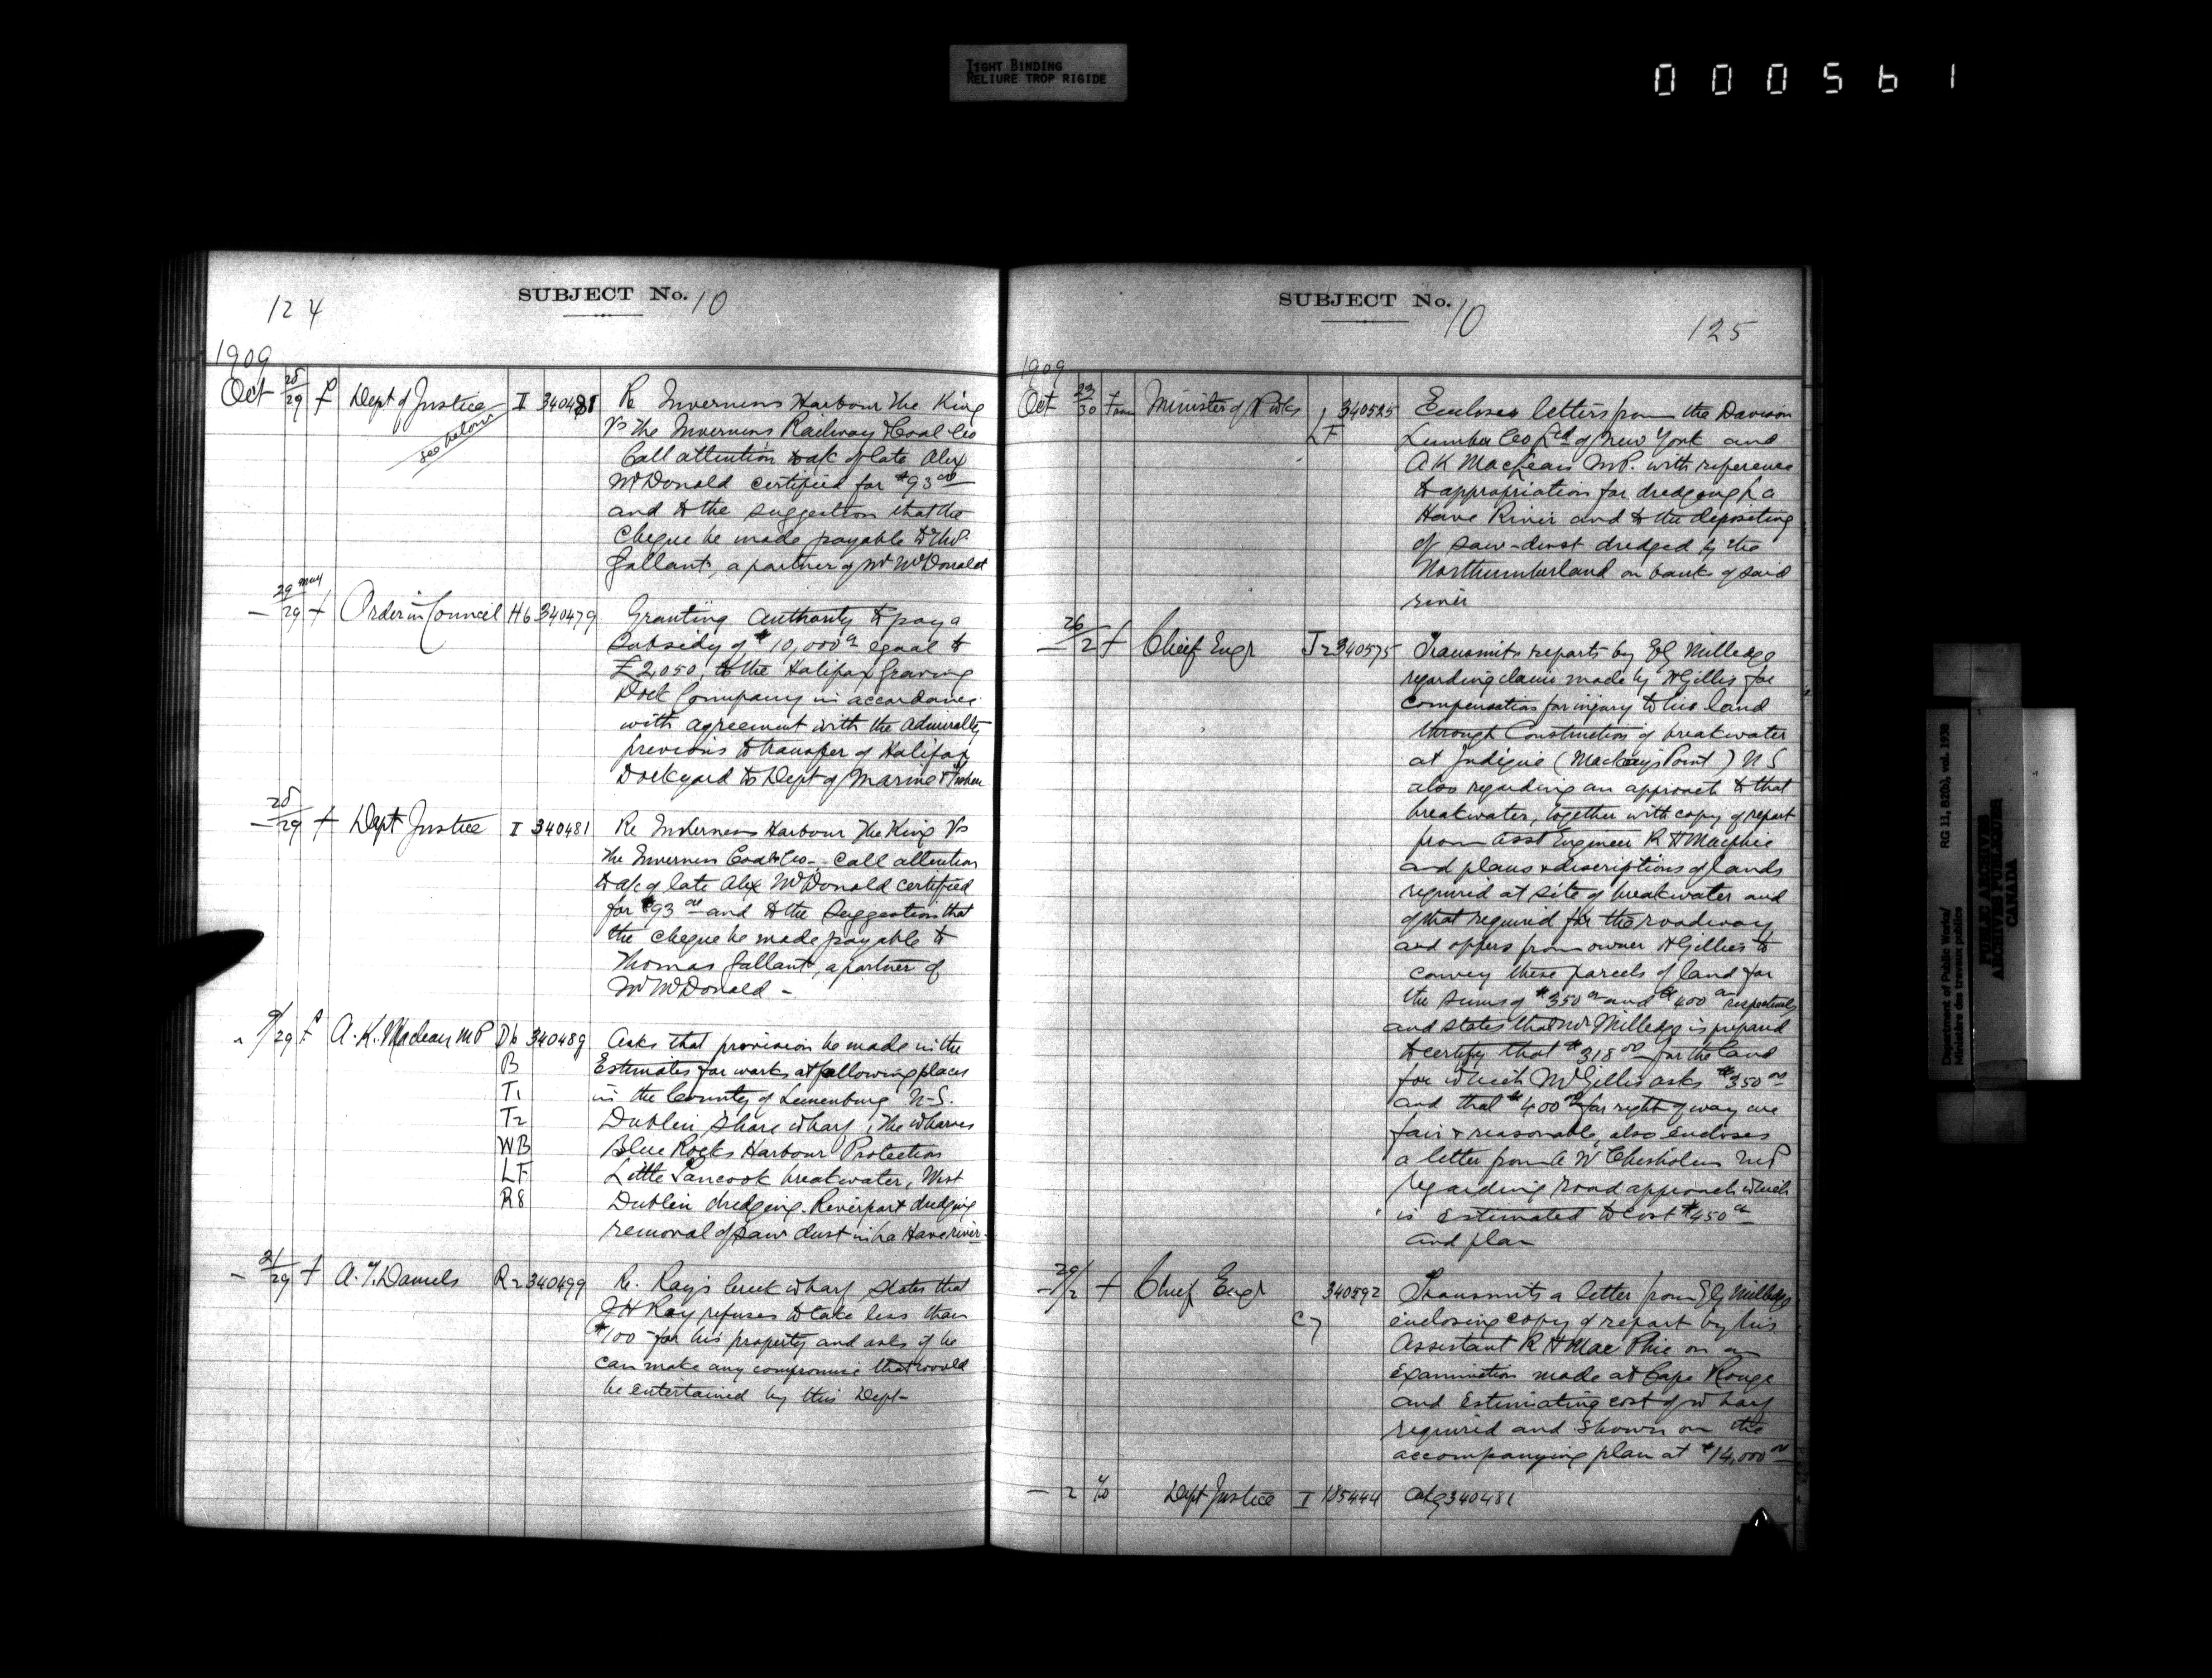 TIGHT BINDING
RELIURE TROP RIGIDE
000561
124
SUBJECT No. 10
1909
Oct 28/29 f Dept of Justice I 340481 Re Inverness Harbour The King
see below
Vs The Inverness Railway & Coal Co
Call attention to a/c of late Alex
McDonald certified for $93 00
and to the suggestion that the
cheque be made payable to Thos.
Gallant, a partner of Mr McDonald
— 29 May/29 f Order in Council H6 340479 Granting authority to pay a
subsidy of $10,000 equal to
£2,050, to the Halifax Graving
Dock Company in accordance
with agreement with the Admiralty
previous to transfer of Halifax
Dockyard to Dept of Marine &
— 28/29 f Dept Justice I 340481 Re Inverness Harbour The King Vs
the Inverness Coal Co - Call attention
to a/c of late Alex McDonald certified
for $93 00 and to the suggestion that
the cheque be made payable to
Thomas Gallant, a partner of
Mr McDonald -
9/29 f A. K. Maclean MP D6 340489 Asks that provision be made in the
B Estimates for works at following places
T1 in the County of Lunenburg N-S.
T2 Dublin Shore wharf, The wharves
WB Blue Rocks Harbour Protection
LF Little Tancook breakwater, West
R8 Dublin dredging. Riverport dredging
removal of saw dust in La Have river.
— 21/29 f A. T. Daniels R2 340499 Re. Ray's Creek wharf states that
J H Ray refuses to take less than
$100 - for his property and asks if he
can make any compromise that would
be entertained by this Dept-
SUBJECT No. 10
125
1909
Oct 23/30 Minister of P Wks 340525 Encloses letters from the Davison
LF Lumber Co Ltd of New York and
A K MacLean M.P. with reference
to appropriation for dredging La
Have River and to the depositing
of saw-dust dredged by the
Northumberland on banks of said
river
— 26/2 f Chief Engr J2 340575 Transmits reports by E G Milledge
regarding claim made by H Gillis for
compensation for injury to his land
through Construction of breakwater
at Judique (Mackays Point) N S
also regarding an approach to that
breakwater, together with copy of report
from asst Engineer R H Macphie
and plans & descriptions of lands
required at site of breakwater and
of that required for the roadway
and offers from owner H Gillies to
convey these parcels of land for
the sums of $350 and $400 respectively
and states that Mr Milledge is prepared
to certify that $318 00 for the land
for which Mr Gillis asks $350 00
and that $400 00 for right of way are
fair & reasonable, also encloses
a letter from A W Chisholm M P
regarding road approach which
is estimated to cost $450
and plan
— 29/2 f Chief Engr 340592 Transmits a letter from E G Milledge
C7 enclosing copy of report by his
Assistant R H MacPhie on an
examination made at Cape Rouge
and estimating cost of wharf
required and shown on the
accompanying plan at $14,000 00
— 2 Dept Justice I 185444 340481
Department of Public Works/
Ministère des travaux publics
RG 11, B2(b), vol. 1938
PUBLIC ARCHIVES
ARCHIVES PUBLIQUES
CANADA